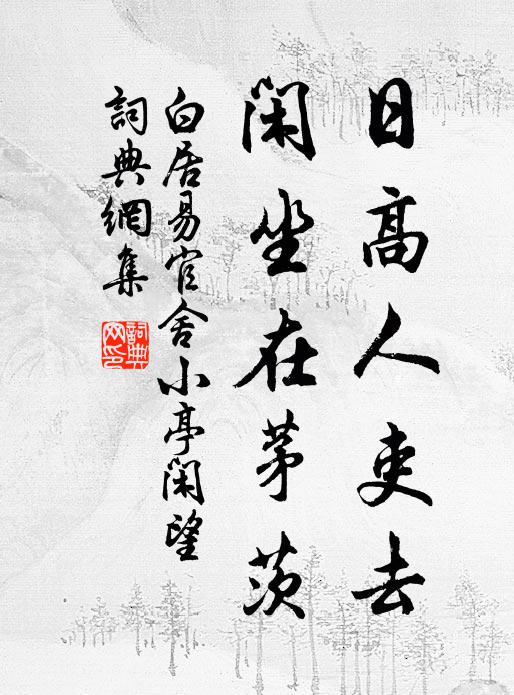 日高人吏去
闲坐在茅茨
白居易官舍小亭闲望
詞典網集
詞典
网印